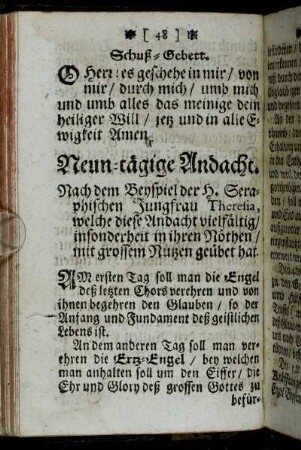 [ 48 ]
Schuß-Gebett.
O Herr: es geschehe in mir / von
mir / durch mich / umb mich
und umb alles das meinige dein
heiliger Will / jetz und in alle E-
wigkeit Amen.
Neun-tägige Andacht.
Nach dem Beyspiel der H. Sera-
phischen Jungfrau Theresia,
welche diese Andacht vielfältig /
insonderheit in ihren Nöthen /
mit grossem Nutzen geübet hat.
AM ersten Tag soll man die Engel
deß letzten Chors verehren und von
ihnen begehren den Glauben / so der
Anfang und Fundament deß geistlichen
Lebens ist.
An dem anderen Tag soll man ver-
ehren die Ertz-Engel / bey welchen
man anhalten soll um den Eiffer / die
Ehr und Glory deß grossen Gottes zu
beför-